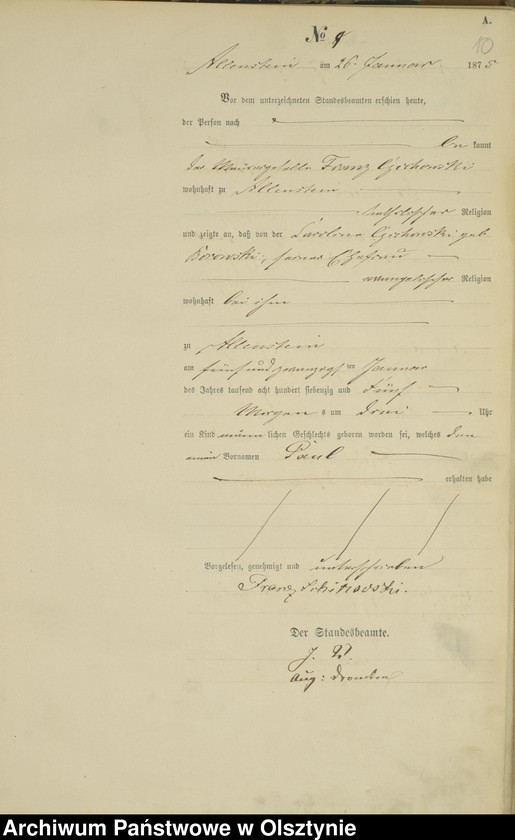 A.
10
No 9
Allenstein am 26. Januar 1875
Vor dem unterzeichneten Standesbeamten erschien heute,
der Person nach
be kannt
der Maurergeselle Franz Czichowski
wohnhaft zu Allenstein
katholischer Religion
und zeigte an, daß von der Caroline Czichowski geb
Borowski, seiner Ehefrau
evangelischer Religion
wohnhaft bei ihm
zu Allenstein
am fünf und zwanzigs ten Januar
des Jahres tausend acht hundert siebenzig und fünf
Morgen s um drei Uhr
ein Kind männ lichen Geschlechts geboren worden sei, welches den
Vornamen Paul
erhalten habe
Vorgelesen, genehmigt und unterschrieben
Franz
Der Standesbeamte.
J. V.
Aug:
Archiwum Państwowe w Olsztynie